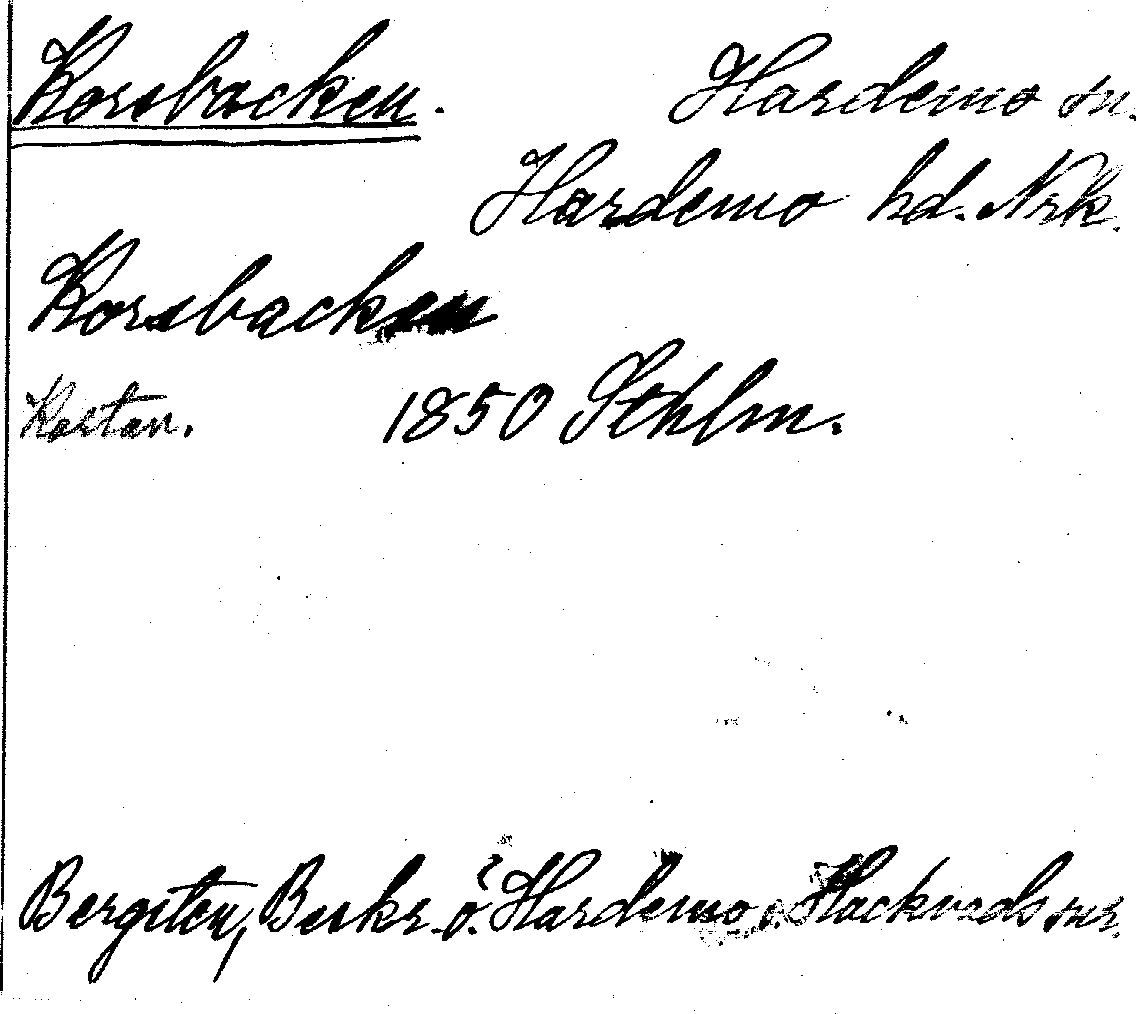 Korsbacken. Hardemo sn.
Hardemo hd. Nrk.
Korsbacken
Kartan. 1850 Sthlm.
Bergsten, Beskr. ö. Hardemo o. Hackvads snr.